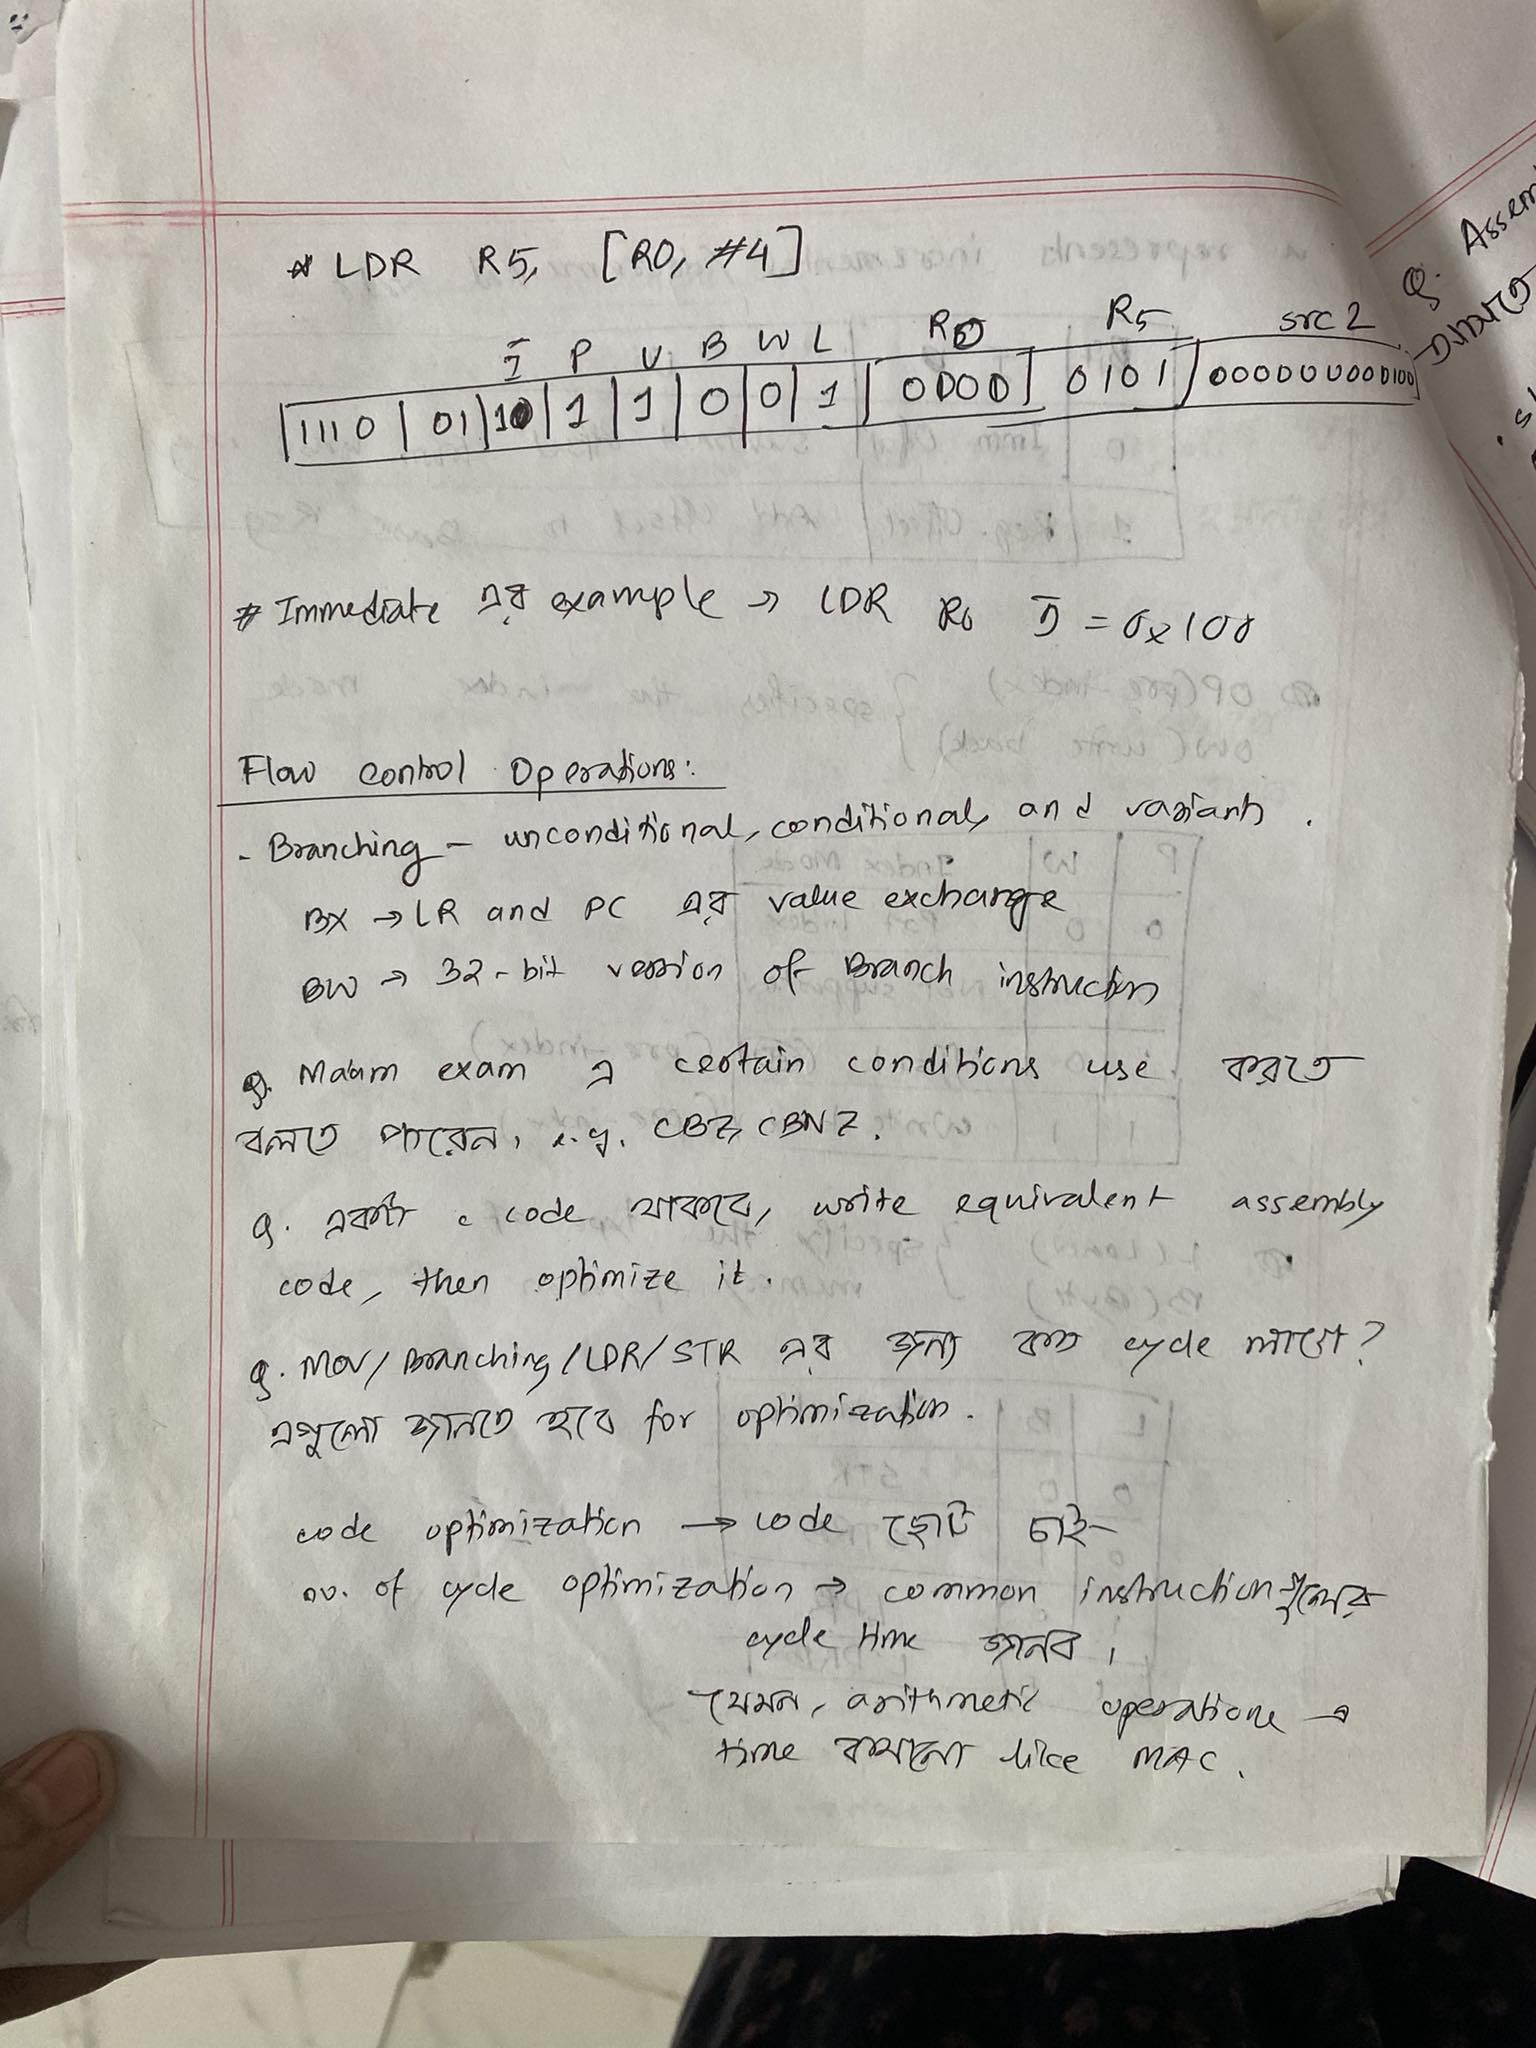 * LDR R5, [R0, #4]
Ī P U B W L R0 R5 src 2
1110 01 10 1 1 0 0 1 0000 0101 000000000100
# Immediate এর example → LDR R0 = 0x100
Flow control Operations:
- Branching - unconditional, conditional, and variants.
BX → LR and PC এর value exchange
BW → 32-bit version of Branch instruction
Q. Ma'am exam এ certain conditions use করতে
বলতে পারেন, e.g. CBZ, CBNZ.
Q. একটা c code থাকবে, write equivalent assembly
code, then optimize it.
Q. MOV/Branching/LDR/STR এর জন্য কত cycle লাগে?
এগুলো জানতে হবে for optimization.
code optimization → code ছোট চাই
no. of cycle optimization → common instruction গুলোর
cycle time জানব।
যেমন, arithmetic operations এ
time কমানো like MAC.
Q. Assem